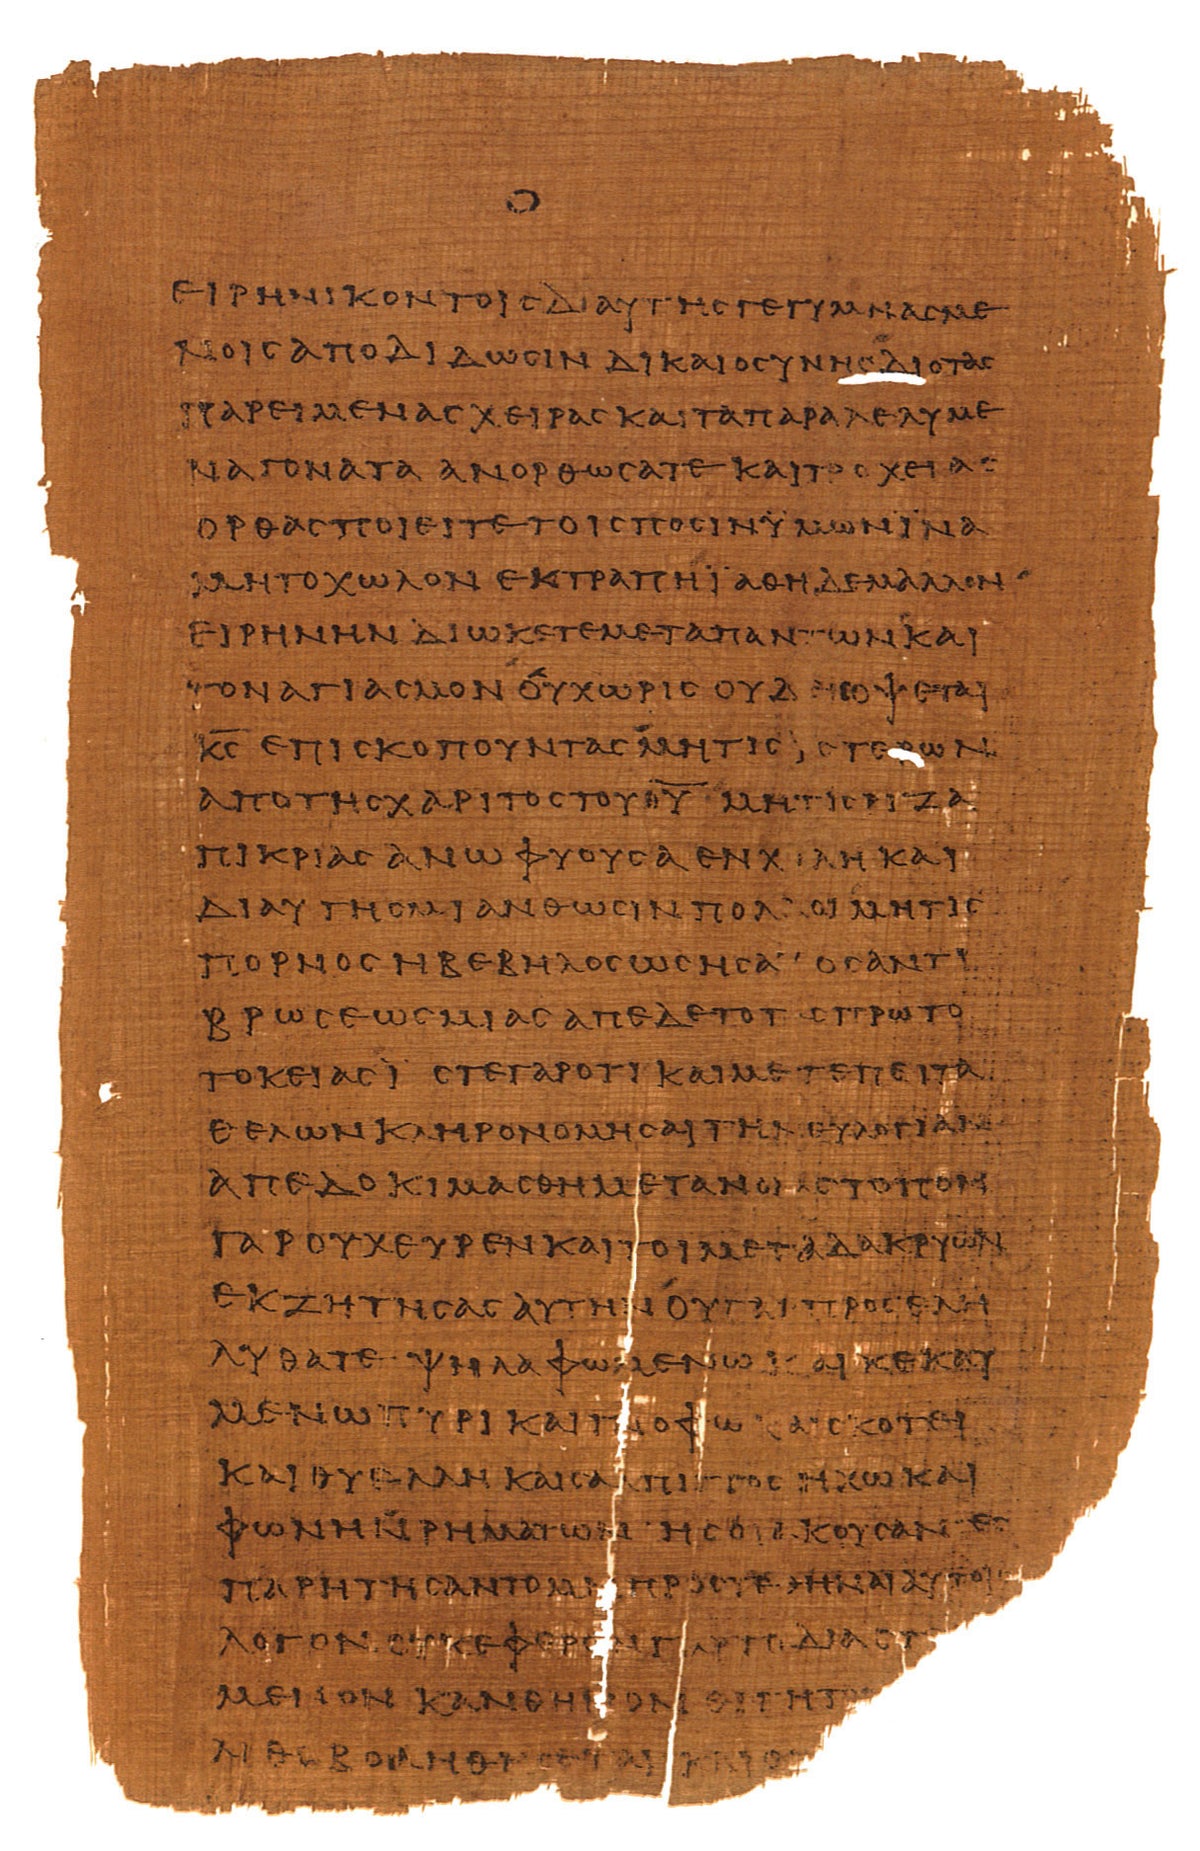 ο
ΕΙΡΗΝΙΚΟΝΤΟΙϹΔΙΑΥΤΗϹΓΕΓΥΜΝΑϹΜΕ
ΝΟΙϹΑΠΟΔΙΔΩϹΙΝΔΙΚΑΙΟϹΥΝΗϹΔΙΟΤΑϹ
ΠΑΡΕΙΜΕΝΑϹΧΕΙΡΑϹΚΑΙΤΑΠΑΡΑΛΕΛΥΜΕ
ΝΑΓΟΝΑΤΑΑΝΟΡΘΩϹΑΤΕΚΑΙΤΡΟΧΕΙΑϹ
ΟΡΘΑϹΠΟΙΕΙΤΕΤΟΙϹΠΟϹΙΝΫΜΩΝΪΝΑ
ΜΗΤΟΧΩΛΟΝΕΚΤΡΑΠΗΪΑΘΗΔΕΜΑΛΛΟΝ
ΕΙΡΗΝΗΝΔΙΩΚΕΤΕΜΕΤΑΠΑΝΤΩΝΚΑΙ
ΤΟΝΑΓΙΑϹΜΟΝΟΥΧΩΡΙϹΟΥΔΕΙϹΟΨΕΤΑΙ
Κ̅Ϲ̅ΕΠΙϹΚΟΠΟΥΝΤΑϹΜΗΤΙϹΥϹΤΕΡΩΝ
ΑΠΟΤΗϹΧΑΡΙΤΟϹΤΟΥΘ̅Υ̅ΜΗΤΙϹΡΙΖΑ
ΠΙΚΡΙΑϹΑΝΩΦΥΟΥϹΑΕΝΧΟΛΗΚΑΙ
ΔΙΑΥΤΗϹΜΙΑΝΘΩϹΙΝΠΟΛΛΟΙΜΗΤΙϹ
ΠΟΡΝΟϹΗΒΕΒΗΛΟϹΩϹΗϹΑΥΟϹΑΝΤΙ
ΒΡΩϹΕΩϹΜΙΑϹΑΠΕΔΕΤΟΤΑϹΠΡΩΤΟ
ΤΟΚΕΙΑϹΪϹΤΕΓΑΡΟΤΙΚΑΙΜΕΤΕΠΕΙΤΑ
ΘΕΛΩΝΚΛΗΡΟΝΟΜΗϹΑΙΤΗΝΕΥΛΟΓΙΑΝ
ΑΠΕΔΟΚΙΜΑϹΘΗΜΕΤΑΝΟΙΑϹΤΟΠΟΝ
ΓΑΡΟΥΧΕΥΡΕΝΚΑΙΤΟΙΜΕΤΑΔΑΚΡΥΩΝ
ΕΚΖΗΤΗϹΑϹΑΥΤΗΝΟΥΓΑΡΠΡΟϹΕΛΗ
ΛΥΘΑΤΕΨΗΛΑΦΩΜΕΝΩΚΑΙΚΕΚΑΥ
ΜΕΝΩΠΥΡΙΚΑΙΓΝΟΦΩΚΑΙϹΚΟΤΕΙ
ΚΑΙΘΥΕΛΛΗΚΑΙϹΑΛΠΙΓΓΟϹΗΧΩΚΑΙ
ΦΩΝΗΝΡΗΜΑΤΩΝΗϹΟΙΑΚΟΥϹΑΝΤΕϹ
ΠΑΡΗΤΗϹΑΝΤΟΜΗΠΡΟϹΤΕΘΗΝΑΙΑΥΤΟΙϹ
ΛΟΓΟΝΟΥΚΕΦΕΡΟΝΓΑΡΤΟΔΙΑϹΤ
ΜΕΝΟΝΚΑΝΘΗΡΙΟΝΘΙΓΗΤΟΥ
ΛΙΘΟΒΟΛΗΘΗϹΕΤΑΙΚΑΙΟΥ